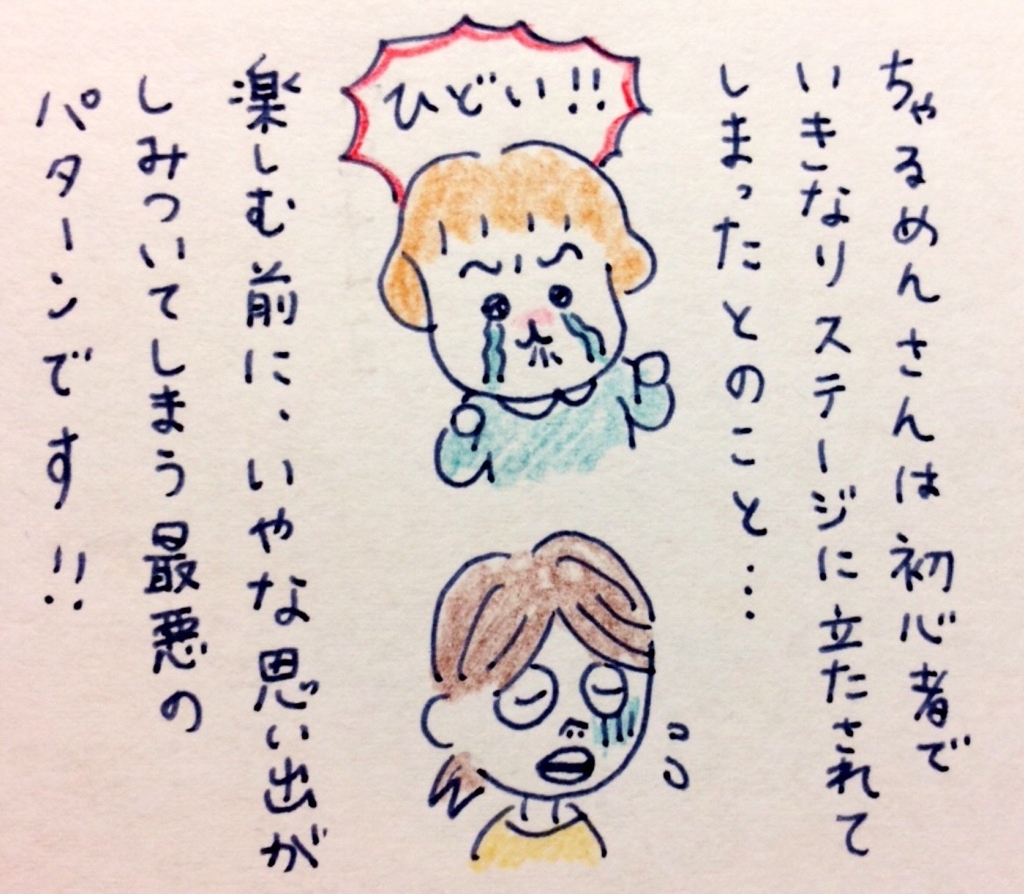 ちゃるめんさんは初心者で
いきなりステージに立たされて
しまったとのこと…
ひどい!!
楽しむ前に、いやな思い出が
しみついてしまう最悪の
パターンです!!